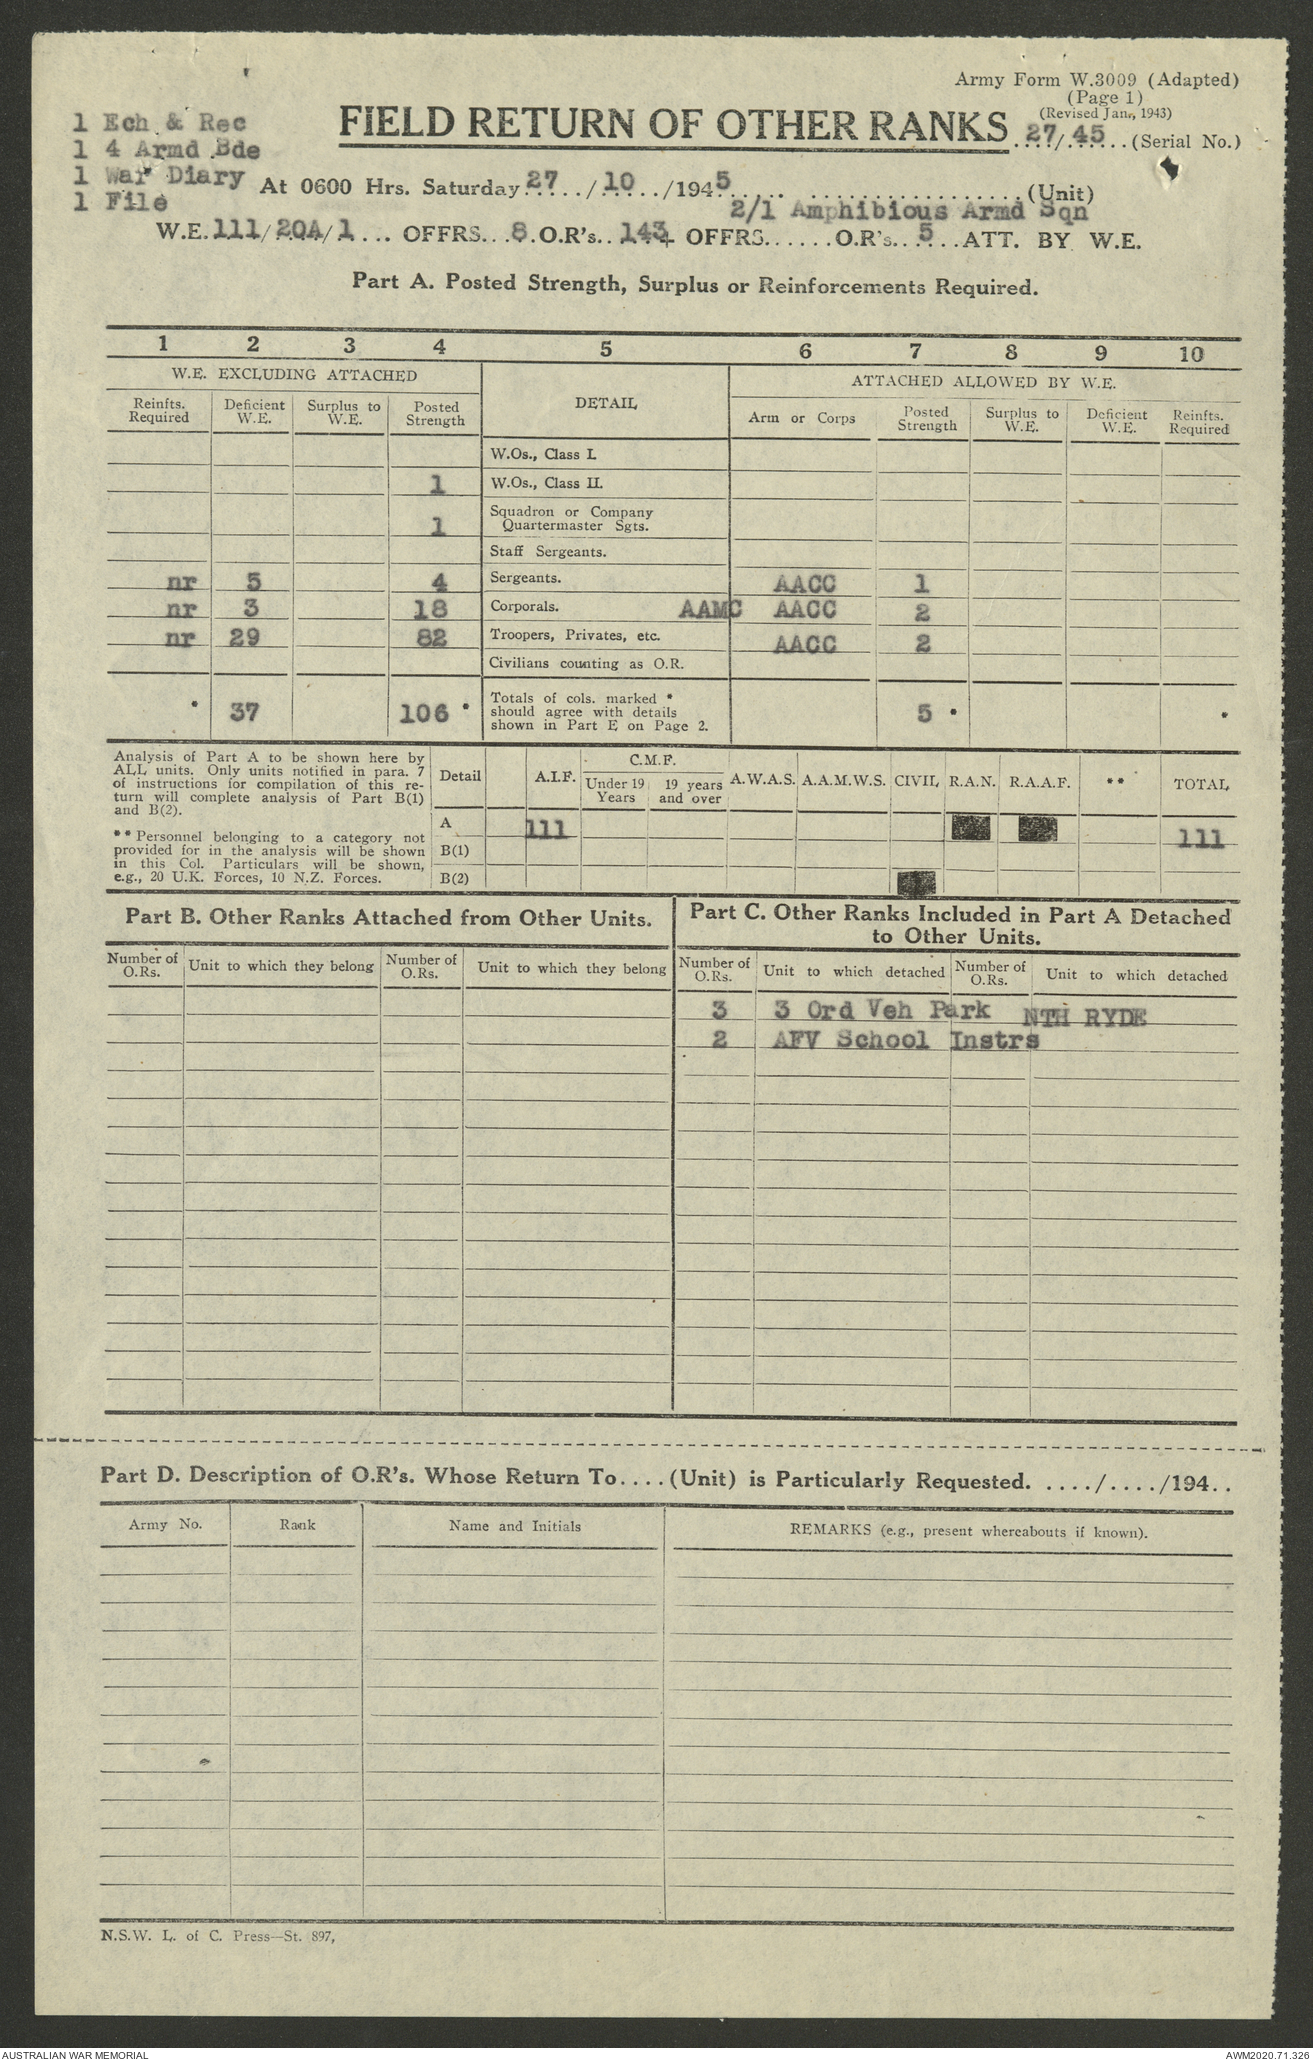 Army Form W.3009 (Adapted)
(Page 1)
(Revised Jan., 1943)
1 Ech & Rec
1 4 Armd Bde
1 War Diary
1 File
FIELD RETURN OF OTHER RANKS 27/45 (Serial No.)
At 0600 Hrs. Saturday 27/10/1945 (Unit)
2/1 Amphibious Armd Sqn
W.E. 111/2QA/1 ... OFFRS...8.O.R's.. 143 OFFRS......O.R's..5...ATT. BY W.E.
Part A. Posted Strength, Surplus or Reinforcements Required.
1 2 3 4 5 6 7 8 9 10
W.E. EXCLUDING ATTACHED DETAIL ATTACHED ALLOWED BY W.E.
Reinfts. Required Deficient W.E. Surplus to W.E. Posted Strength Arm or Corps Posted Strength Surplus to W.E. Deficient W.E. Reinfts. Required
W.Os., Class I.
1 W.Os., Class II.
1 Squadron or Company Quartermaster Sgts.
Staff Sergeants.
nr 5 4 Sergeants. AACC 1
nr 3 18 Corporals. AAMC AACC 2
nr 29 82 Troopers, Privates, etc. AACC 2
Civilians counting as O.R.
* 37 106 * Totals of cols. marked * should agree with details shown in Part E on Page 2. 5 * *
Analysis of Part A to be shown here by
ALL units. Only units notified in para. 7
of instructions for compilation of this re-
turn will complete analysis of Part B(1)
and B(2).
** Personnel belonging to a category not
provided for in the analysis will be shown
in this Col. Particulars will be shown,
e.g., 20 U.K. Forces, 10 N.Z. Forces.
Detail A.I.F. C.M.F. Under 19 Years 19 years and over A.W.A.S. A.A.M.W.S. CIVIL R.A.N. R.A.A.F. ** TOTAL
A 111 111
B(1)
B(2)
Part B. Other Ranks Attached from Other Units.
Number of O.Rs. Unit to which they belong Number of O.Rs. Unit to which they belong
Part C. Other Ranks Included in Part A Detached
to Other Units.
Number of O.Rs. Unit to which detached Number of O.Rs. Unit to which detached
3 3 Ord Veh Park NTH RYDE
2 AFV School Instrs
Part D. Description of O.R's. Whose Return To....(Unit) is Particularly Requested. ..../..../194..
Army No. Rank Name and Initials REMARKS (e.g., present whereabouts if known).
N.S.W. L. of C. Press—St. 897,
AUSTRALIAN WAR MEMORIAL AWM2020.71.326